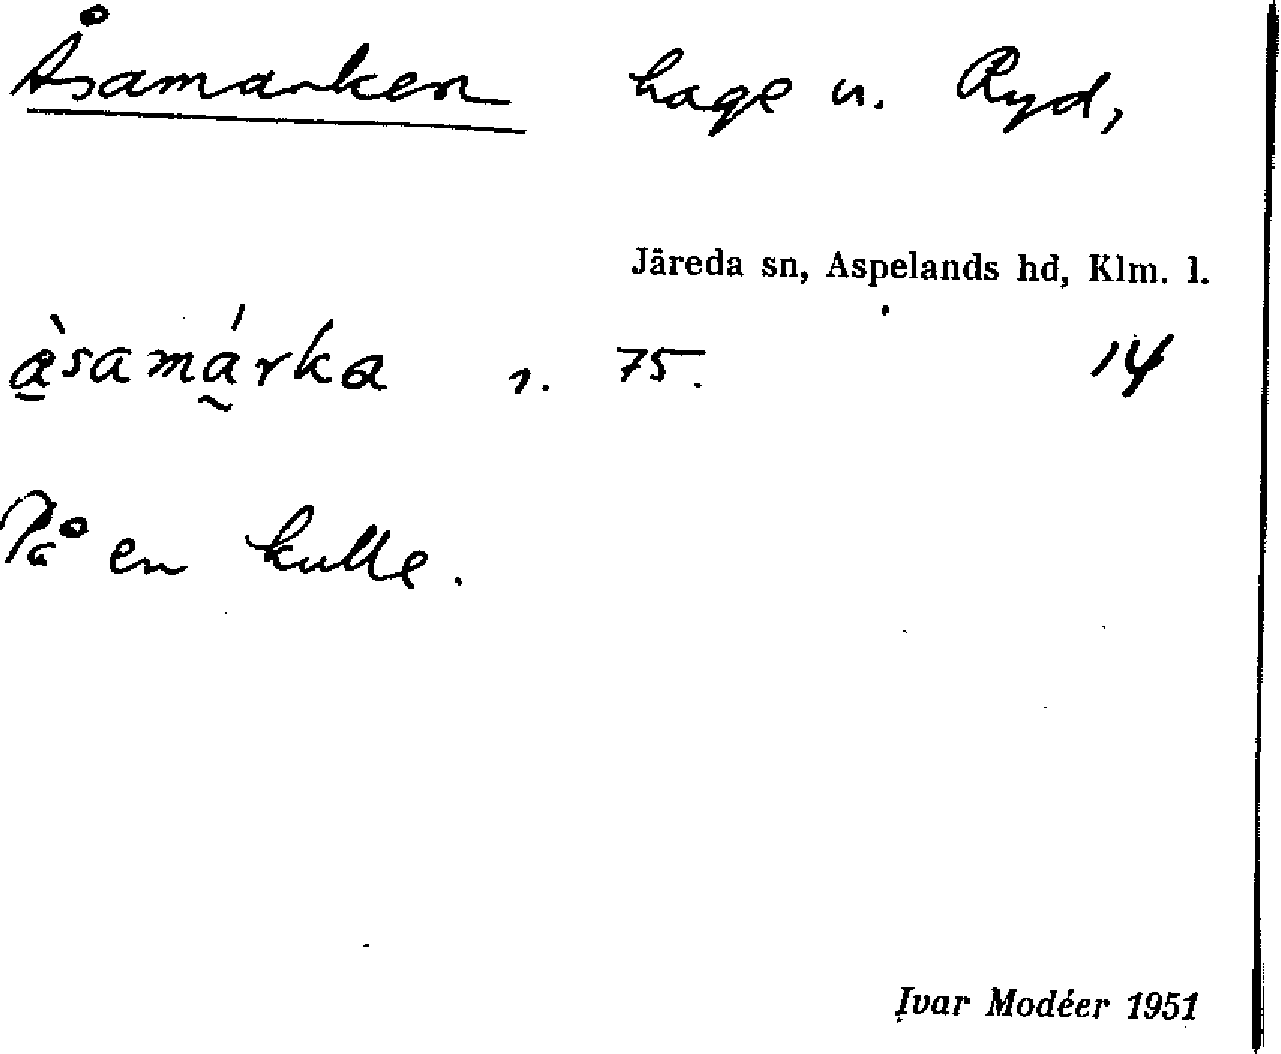 Åsamarken hage n. Ryd,
Järeda sn, Aspelands hd, Klm. l.
a̠̒̀samárka n. 75. 14
På en kulle.
Ivar Modéer 1951